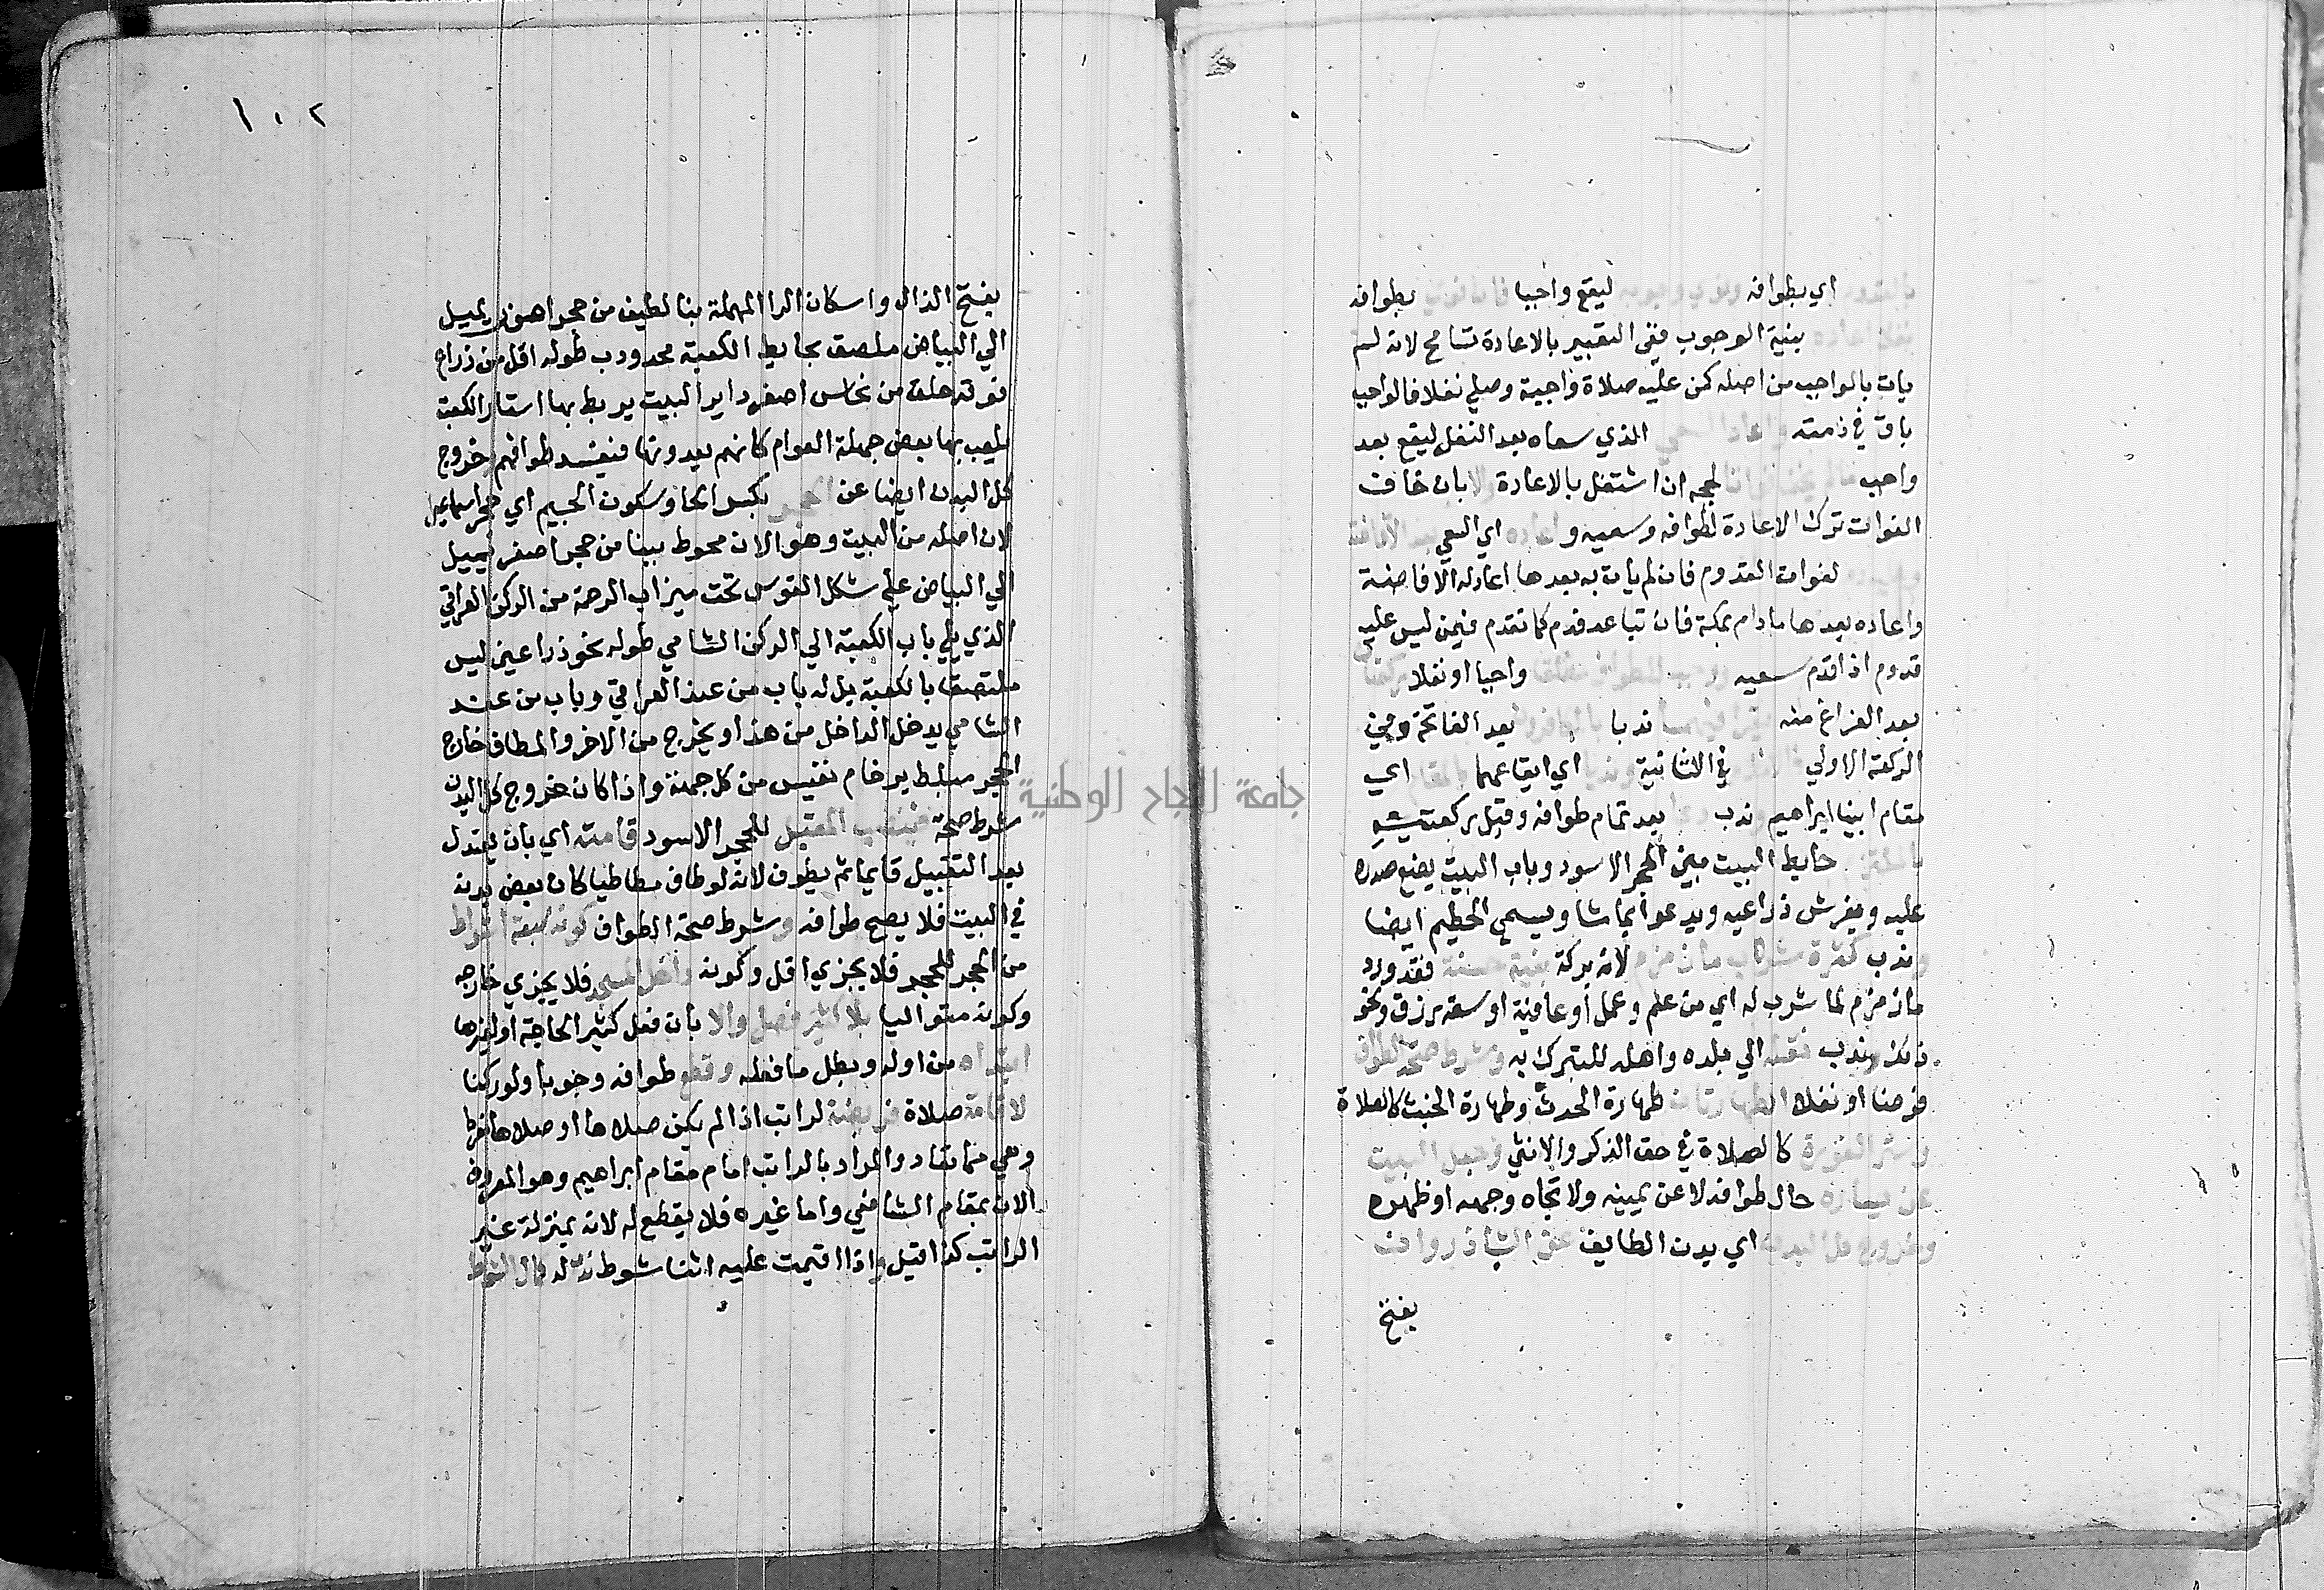 اي بطوافه ليقع واجبا بطوافه
بنية الوجوب ففي التعبير بالاعادة تسامح لانه لم
يات بالواجب من اصله كمن عليه صلاة واجبة وصلي نفلا فالواجب
باق في ذمته واعاد السعي الذي سعاه بعد النفل ليقع بعد
واجب لحجه ان اشتغل بالاعادة والا بان خاف
الفوات ترك الاعادة لطوافه وسعيه واعاده اي السعي بعد الافاضة
لفوات القدوم فان لم يات به بعدها اعاد له الافاضة
واعاده بعدها مادام بمكة فان تباعد فدم كما تقدم فيمن ليس عليه
قدوم اذا قدم سعيه ووجب للطواف مطلقا واجبا او نفلا ركعتان
بعد الفراغ منه يقرا فيهما ندبا بالكافرون بعد الفاتحة في
الركعة الاولي في الثانية وندبا اي ايقاعهما بالمقام اي
مقام ابينا ابراهيم وندب دعا بعد تمام طوافه وقبل ركعتيه
بالملتزم حايط البيت مبين الحجر الاسود وباب البيت يضع صدره
عليه ويفرش ذراعيه ويدعو ايما شا ويسمي الحطيم ايضا
وندب كثرة شراب ما زمزم لانه بركة بنية حسنة فقد ورد
ماء زمزم لما شرب له اي من علم وعمل او عافية او سعة رزق ونحو
ذلك وندب نقله الي بلده واهله للتبرك به وشرط صحة الطواف
فرضا او نفلا الطهارتان طهارة الحدث وطهارة الخبث كالصلاة
وستر العورة كالصلاة في حق الذكر والانثي وجعل البيت
عن يساره حال طوافه لا عن يمينه ولا تجاه وجهه او ظهره
وخروج كل البدن اي بدن الطايف عن الشاذروان
بفتح
١٠٢
بفتح الذال واسكان الرا المهملة بنا لطيف من حجر اصفر يميل
الي البياض ملصق بحايط الكعبة محدودب طوله اقل من ذراع
فوقه حلق من نحاس اصفر داير البيت يربط بها استار الكعبة
يلعب بها بعض جهلة العوام كانهم يعدونها فيفسد طوافهم وخروج
كل البدن ايضا عن الحجر بكسر الحا وسكون الجيم اي حجر اسماعيل
لان اصله من البيت وهو الان محوط ببنا من حجر اصفر يميل
الي البياض علي شكل القوس تحت ميزاب الرحمة من الركن العراقي
الذي يلي باب الكعبة الي الركن الشامي طوله نحو ذراعين ليس
ملتصقا بالكعبة بل له باب من عند العراقي وباب من عند
الشامي يدخل الداخل من هذا ويخرج من الاخر والمطاف خارج
الحجر مبلط برخام نفيس من كل جهة واذا كان خروج كل البدن
شرط صحة فينصب المقبل للحجر الاسود قامته اي بان يعتدل
بعد التقبيل قايما ثم يطوف لانه لو طاف مطاطيا كان بعض بدنه
في البيت فلا يصح طوافه وشرط صحة الطواف كونه سبعة اشواط
من الحجر للحجر فلا يجزي اقل وكونه داخل المسجد فلا يجزي خارجه
وكونه متواليا بلا كثير فصل والا بان فصل كثيرا لحاجة او لغيرها
ابتداه من اوله وبطل ما فعله وقطع طوافه وجوبا ولو ركنا
لاقامة صلاة فريضة لراتب اذا لم يكن صلاها او صلاها مفردا
وهي مما تعاد والمراد بالراتب امام مقام ابراهيم وهو المعروف
الان بمقام الشافعي واما غيره فلا يقطع له لانه بمنزلة غير
الراتب كذا قيل واذا اقيمت عليه اثنا شوط ندب له كمال الشوط
جامعة النجاح الوطنية